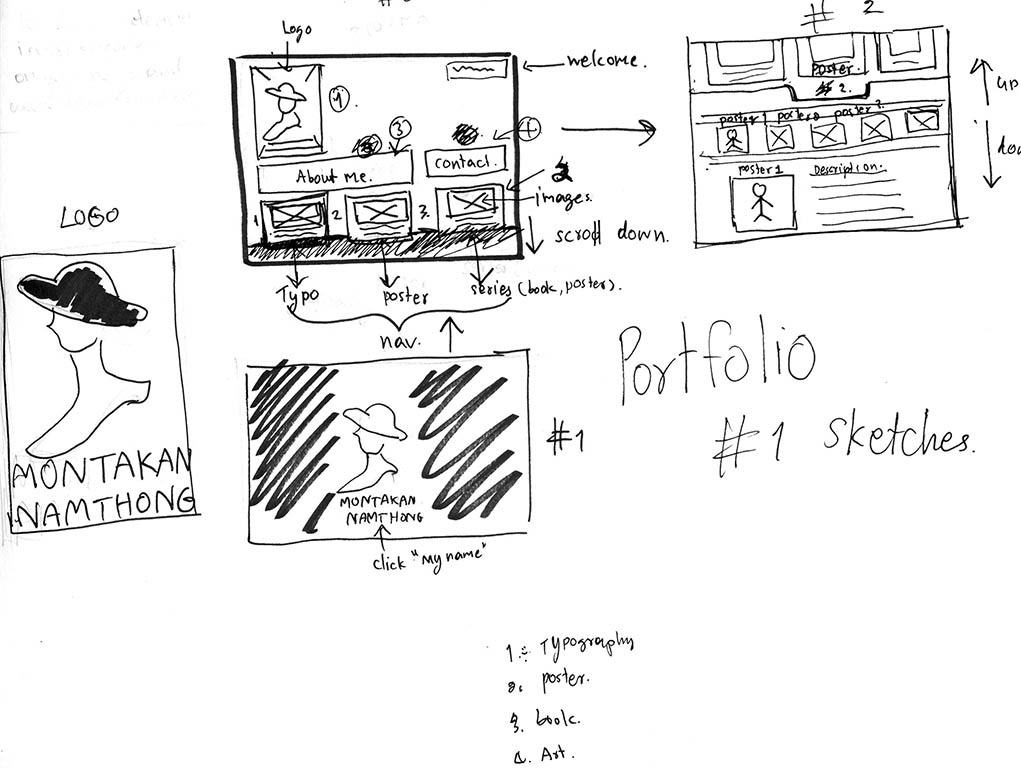 # 2
Logo
welcome.
1.
3
4
About me.
contact.
images.
1
2
3.
scroll down.
Typo
poster
series (book, poster).
nav.
poster
# 2.
poster 1 poster 2 poster 3
poster 1
Description.
up
LOGO
MONTAKAN
NAMTHONG
MONTAKAN
NAMTHONG
click "My name"
#1
Portfolio
#1 sketches.
1. Typography
2. poster.
3. book.
4. Art.